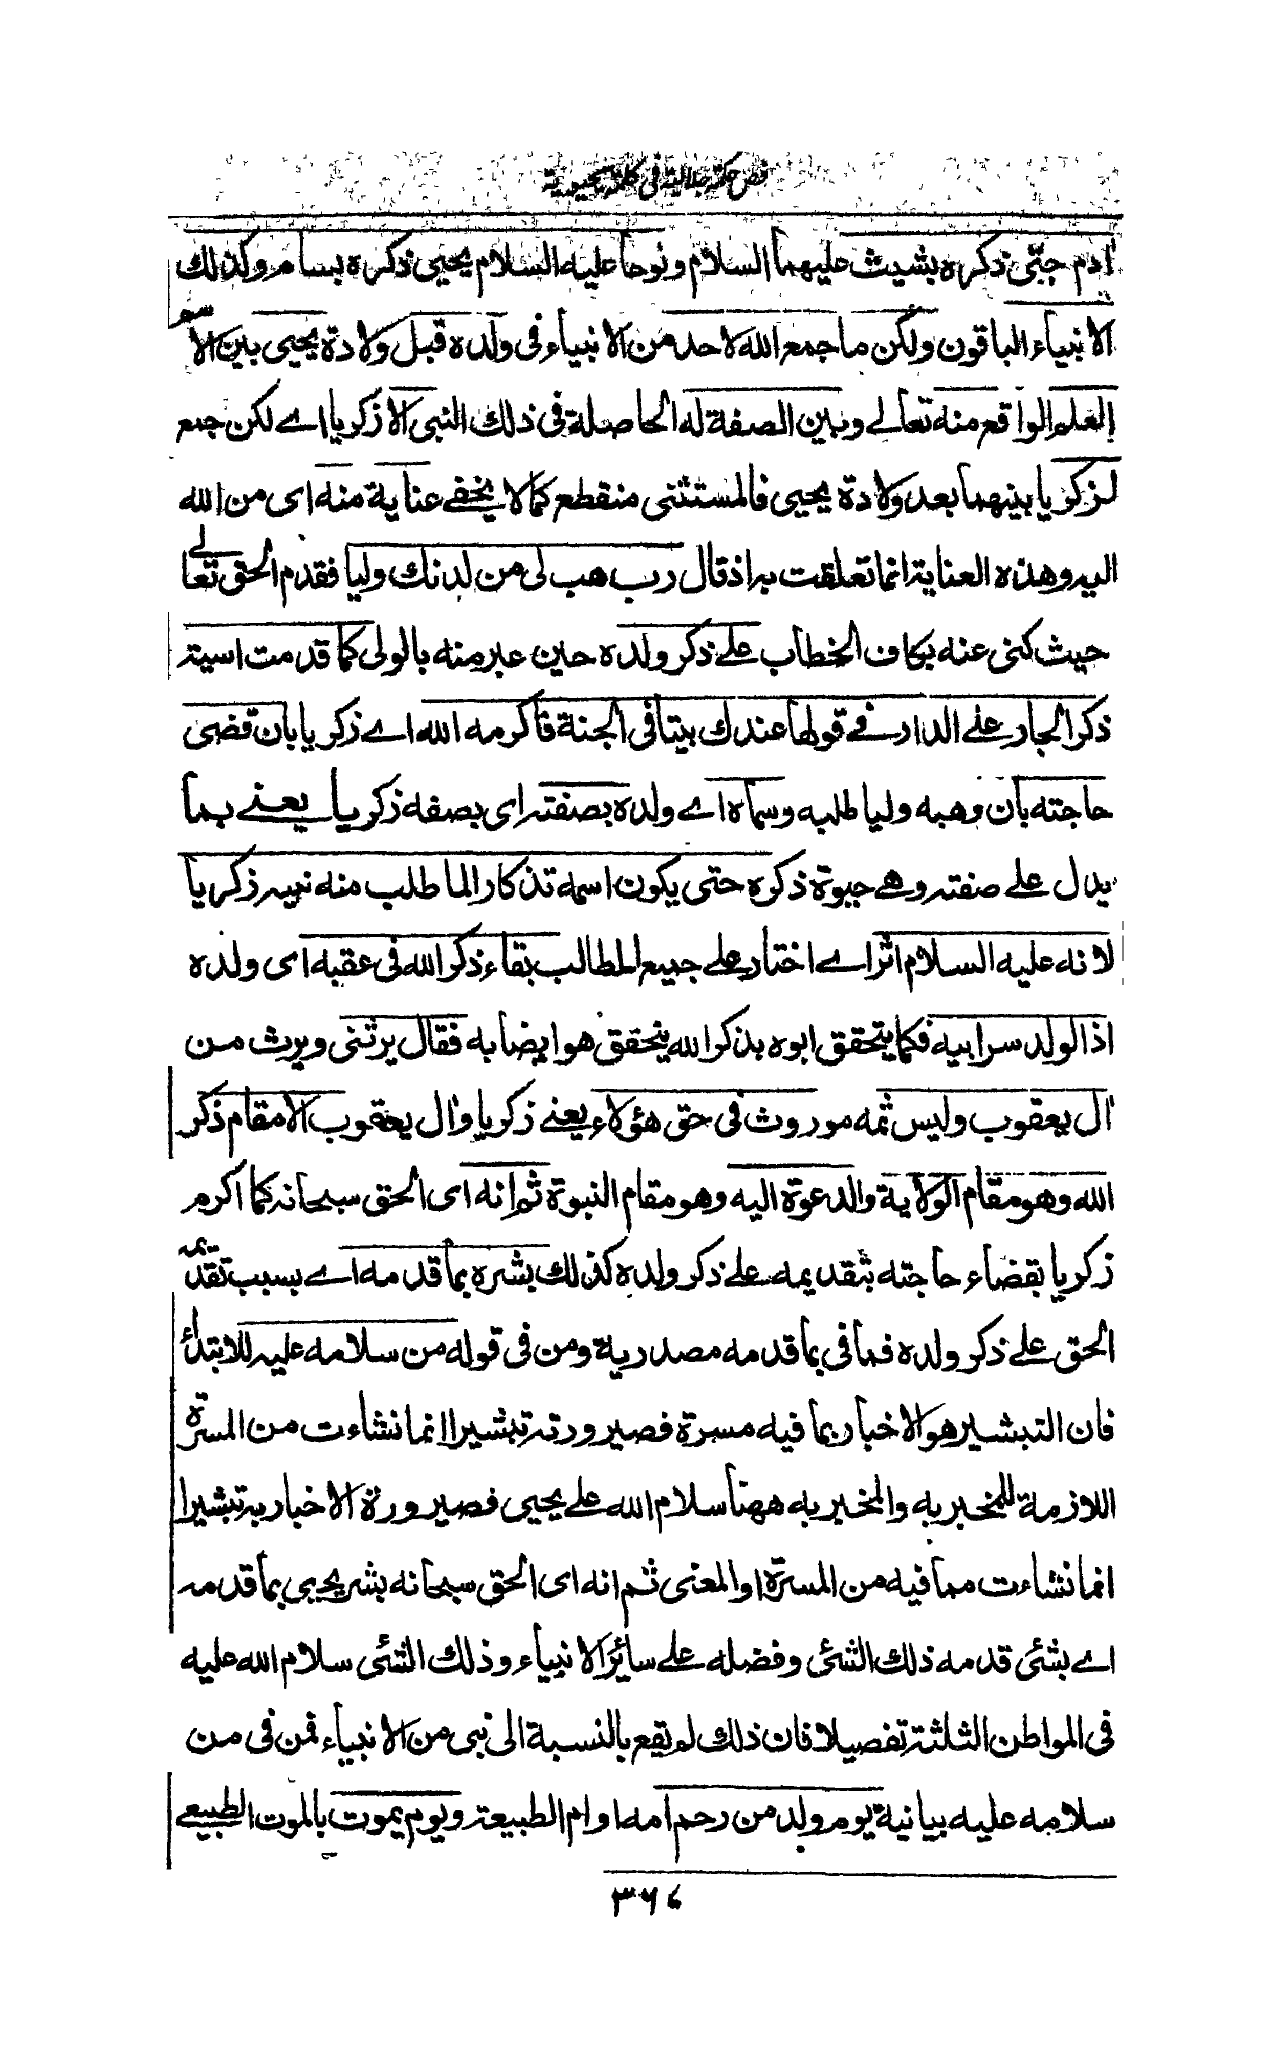 فص حكمة جلالية في كلمة يحيوية
آدم حيّى ذكره بشيث عليهما السلام ونوحا عليه السلام يحيى ذكره بسام وكذلك
الانبياء الباقون ولكن ما جمع الله لاحد من الانبياء في ولده قبل ولادة يحيى بين الاسم
العلم الواقع منه تعالے وبين الصفة له الحاصلة في ذلك النبي الا زكريا اے لكن جمع
لزكريا بينهما بعد ولادة يحيى فالمستثنى منقطع كما لا يخفے عناية منه اى من الله
اليه وهذه العناية انما تعلقت به اذ قال رب هب لى من لدنك وليا فقدم الحق تعالے
حيث كنى عنه بكاف الخطاب علے ذكر ولده حين عبر منه بالولى كما قدمت اسية
ذكر الجار علے الدار فے قولها عندك بيتا في الجنة فاكرمه الله اے زكريا بان قضى
حاجته بان وهبه وليا طلبه وسماه اے ولده بصفته اى بصفه زكريا يعنے بما
يدل علے صفته وهے حيوة ذكره حتى يكون اسمه تذكار الما طلب منه نبيه زكريا
لانه عليه السلام اثر اے اختار علے جميع المطالب بقاء ذكر الله في عقبه اى ولده
اذ الولد سر ابيه فكما يتحقق ابوه بذكر الله يتحقق هو ايضا به فقال يرثنى ويرث من
ال يعقوب وليس ثمه موروث في حق هؤلاء يعنے زكريا وال يعقوب الا مقام ذكر
الله وهو مقام الولاية والدعوة اليه وهو مقام النبوة ثم انه اى الحق سبحانه كما اكرم
زكريا بقضاء حاجته بتقديمه علے ذكر ولده كذلك بشره بما قدمه اے بسبب تقديمه
الحق علے ذكر ولده فما في بما قدمه مصدرية ومن في قوله من سلامه عليه للابتداء
فان التبشير هو الاخبار بما فيه مسرة فصيرورته تبشيرا انما نشاءت من المسرة
اللازمة للمخبر به والمخبر به ههنا سلام الله علے يحيى فصيرورة الاخبار به تبشيرا
انما نشاءت مما فيه من المسرة او المعنى ثم انه اى الحق سبحانه بشر يحيى بما قدمه
اے بشئ قدمه ذلك الشئ وفضله علے سائر الانبياء وذلك الشئ سلام الله عليه
في المواطن الثلثة تفصيلا فان ذلك لم يقع بالنسبة الى نبى من الانبياء فمن في من
سلامه عليه بيانية يوم ولد من رحم امه او ام الطبيعة ويوم يموت بالموت الطبيعے
٣٦٧